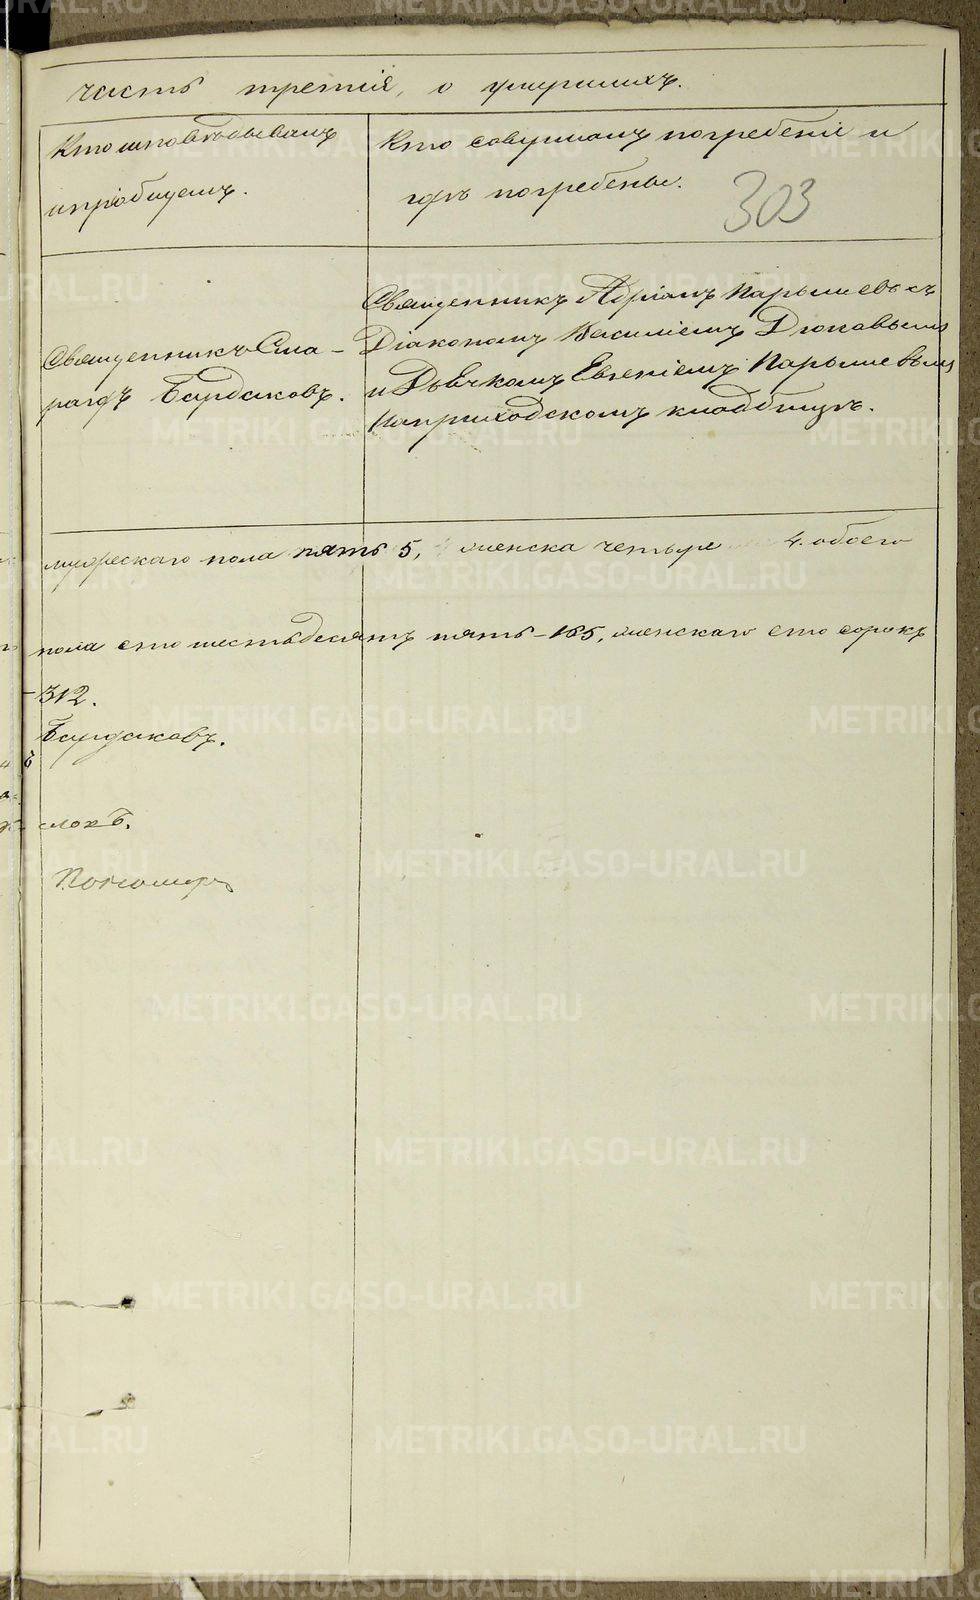 часть третія, о умершихъ.
Кто исповѣдывалъ
и пріобщалъ.
Кто совершалъ погребеніе и
гдѣ погребены.
303
Священникъ Сма-
рагдъ Бардаковъ.
Священникъ Адріанъ Парышевъ съ
Діакономъ Василіемъ Дюковымъ
и Дьячкомъ Евгеніемъ Парышевымъ
на приходскомъ кладбищѣ.
мужескаго пола пять 5, женска четыре 4. обоего
пола сто шестьдесятъ пять - 165, женскаго сто сорокъ
- 312.
Бардаковъ.
Пономарь
METRIKI.GASO-URAL.RU